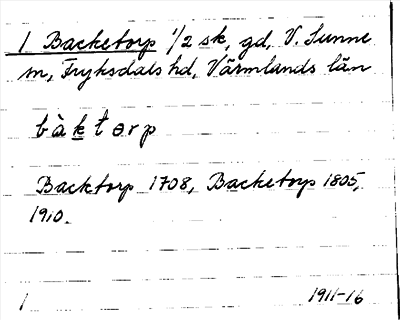 1 Backetorp 1/2 sk, gd, V. Sunne
sn, Fryksdals hd, Värmlands län
bàktorp
Backtorp 1708, Backetorp 1805,
1910.
1 1911-16